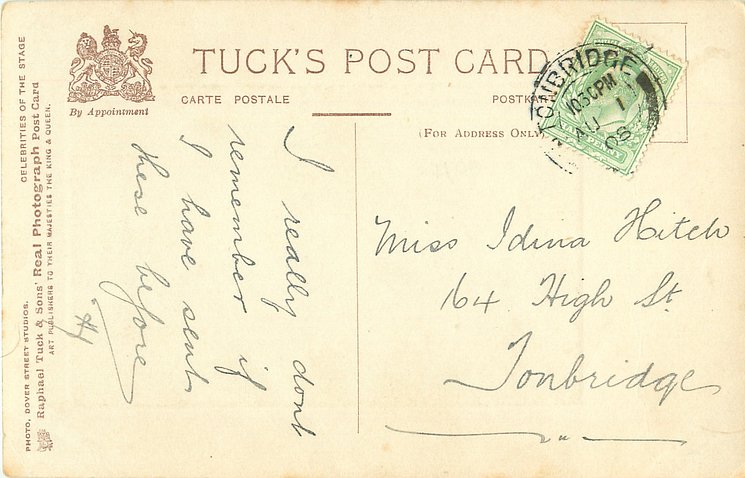 TUCK'S POST CARD
CARTE POSTALE
POSTKAR
(FOR ADDRESS ONLY)
By Appointment
CELEBRITIES OF THE STAGE
Raphael Tuck & Sons' Real Photograph Post Card
ART PUBLISHERS TO THEIR MAJESTIES THE KING & QUEEN.
PHOTO, DOVER STREET STUDIOS.
TONBRIDGE
10.30PM
AU 1
08
I really dont
remember if
I have sent
these before
Miss Idina Hitch
164 High St.
Tonbridge